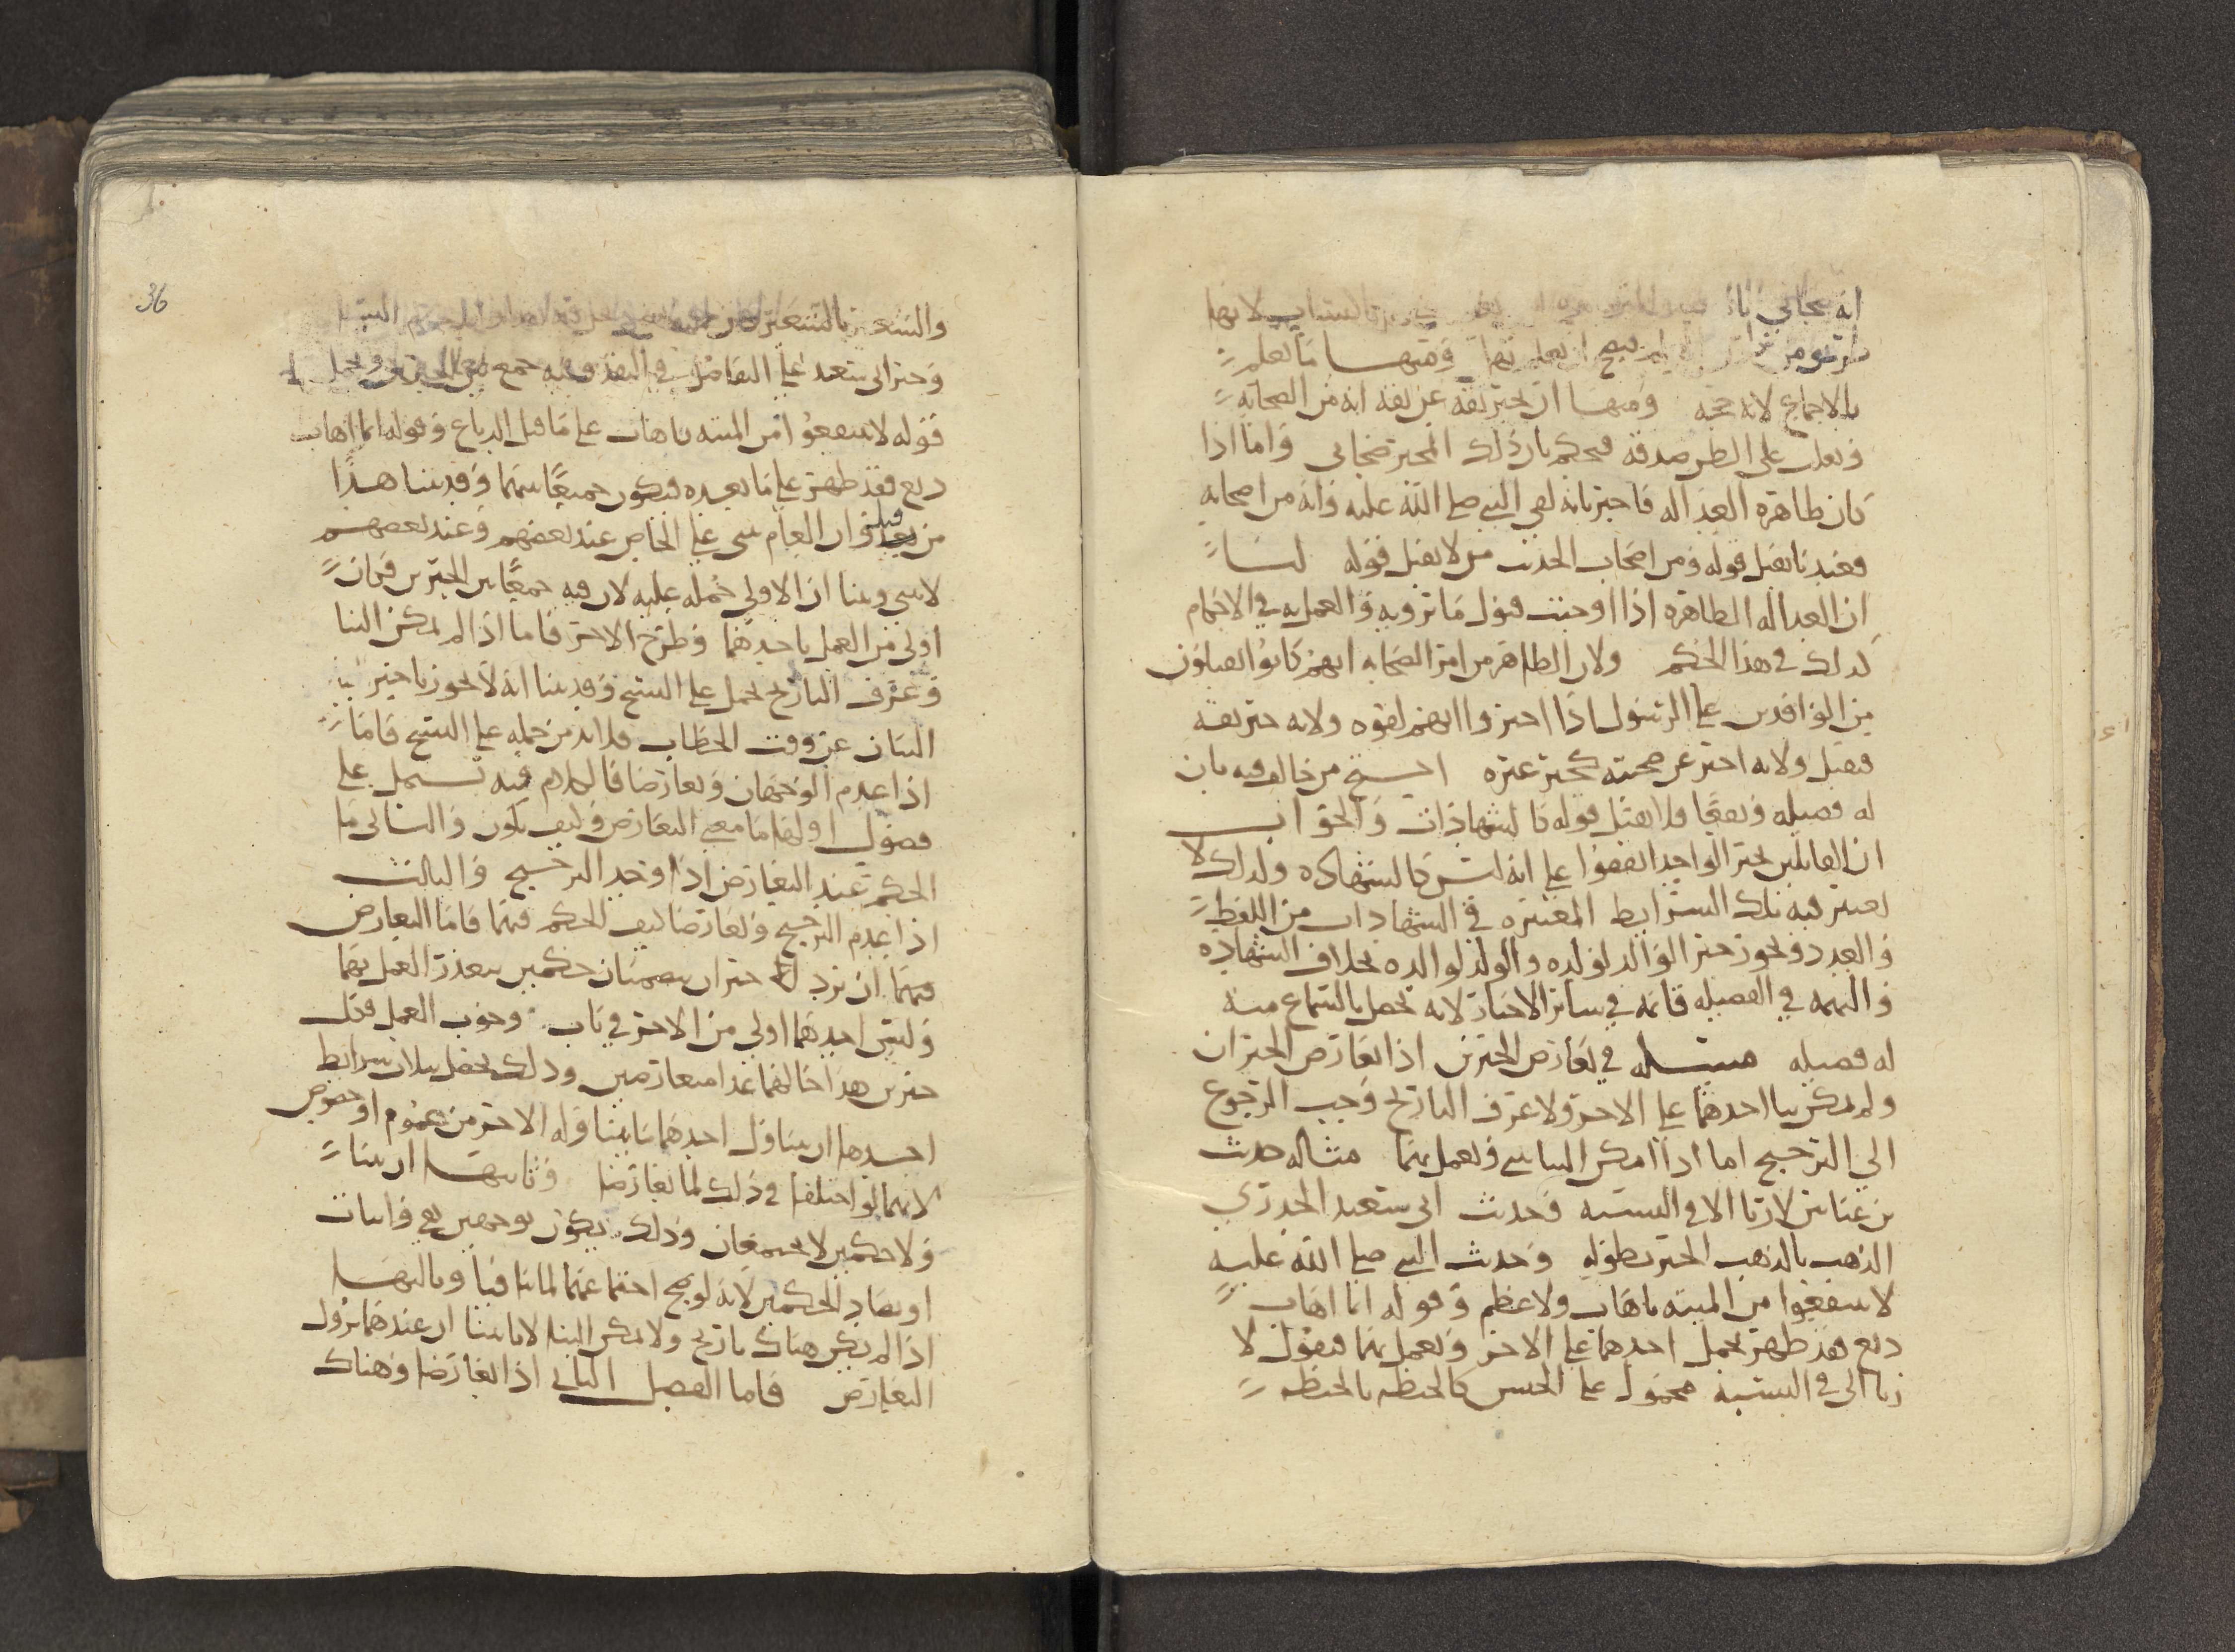 انه صحابي لانها
طريق من ومنها ما يعلم
بالاجماع لانه حجه ومنها ان يخبر ثقه عن ثقه انه من الصحابه
ويغلب على الظن صدقه فيحكم بان ذلك المخبر صحابي واما اذا
كان ظاهره العداله فاخبر بانه لقي النبي صلى الله عليه وانه من اصحابه
فعندنا يقبل قوله ومن اصحاب الحديث من لا يقبل قوله لنا
ان العداله الظاهره اذا اوجبت قبول ما يرويه والعمل به في الاحكام
كذلك في هذا الحكم ولان الظاهر من امر الصحابه انهم كانوا يقبلون
من الوافدين على الرسول اذا اخبروا انهم لقوه ولانه خبر ثقه
فيقبل ولانه اخبر عن صحبته كخبر غيره احتج من خالف فيه بان
له فضيله ونفعا فلا يقبل قوله كالشهادات والجواب
ان القائلين بخبر الواحد اتفقوا على انه ليس كالشهاده ولذلك لا
يعتبر فيه تلك الشرايط المعتبره في الشهادات من اللفظ
والعدد ويجوز خبر الوالد لولده والولد لوالده بخلاف الشهاده
والتهمه في الفضيله قائمه في سائر الاخبار لانه يحصل بالسماع منه
له فضيله مسئله في تعارض الخبرين اذا تعارض الخبران
ولم يمكن بنا احدهما على الاخر ولا عرف التاريخ وجب الرجوع
الى الترجيح اما اذا امكن البنا بني ويعمل بهما مثاله حديث
بن عباس لا ربا الا في النسيه وحديث ابي سعيد الخدري
الذهب بالذهب الخبر بطوله وحديث النبي صلى الله عليه
لا تنتفعوا من الميته باهاب ولا عظم وقوله ايما اهاب
دبغ فقد طهر يحمل احدهما على الاخر ويعمل بهما فيقول لا
ربا الا في النسيه محمول على الجنس كالحنطه بالحنطه
والشعير بالشعير
وخبر ابي سعيد على التفاضل في النقد وفيه جمع بين الخبرين ويحمل
قوله لا تنتفعوا من الميته باهاب على ما قبل الدباغ وقوله ايما اهاب
دبغ فقد طهر على ما بعده فيكون جمعا بينهما وقد بينا هذا
من قبل وان العام يبنى على الخاص عند بعضهم وعند بعضهم
لا يبنى وبينا ان الاولى حمله عليه لان فيه جمعا بين الخبرين فكان
اولى من العمل باحدهما وطرح الاخر فاما اذا لم يمكن البنا
وعرف التاريخ يحمل على النسخ وقد بينا انه لا يجوز تاخير
البيان عن وقت الخطاب فلا بد من حمله على النسخ فاما
اذا عدم الوجهان وتعارضا فالكلام فيه يشتمل على
فصول اولها ما معنى التعارض وكيف يكون والثاني ما
الحكم عند التعارض اذا وجد الترجيح والثالث
اذا عدم الترجيح وتعارضا كيف الحكم فيهما فاما التعارض
فيهما ان يرد خبران يتضمنان حكمين يتعذر العمل بهما
وليس احدهما اولى من الاخر في باب وجوب العمل فكل
خبرين هذا حالهما عدا متعارضين وذلك يحصل بثلاث شرايط
احدها ان يتناول احدهما ما يتناوله الاخر من عموم او خصوص
لانهما لو اختلفا في ذلك لما تعارضا وثانيها ان يتنا
ولا حكمين لا يجتمعان وذلك يكون بوجهين نفي واثبات
او تضاد الحكمين لانه لو صح اجتماعهما لما تنافيا وثالثها
اذا لم يكن هناك تاريخ ولا يمكن البنا لانا بينا ان عندهما يزول
التعارض فاما الفصل الثاني اذا تعارضا وهناك
36